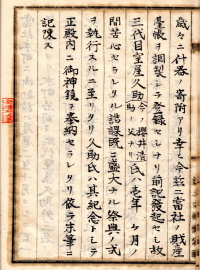 歳々ニ什器ノ寄附アリ幸ヒ今玆ニ當社ノ財産
臺帳ヲ調製シテ登録セシナリ前記發起セシ故
三代目室屋久助今ノ櫻井淸ノ父ナリ氏壱年ヶ月ノ
間苦心セラレタル諸課既ニ盛大ナル祭典ノ式
ヲ執行スルニ至リタリ久助氏ハ其紀念トシテ
正殿内ニ御神鏡ヲ奉納セラレタリ依テ末筆ニ
記陳ス